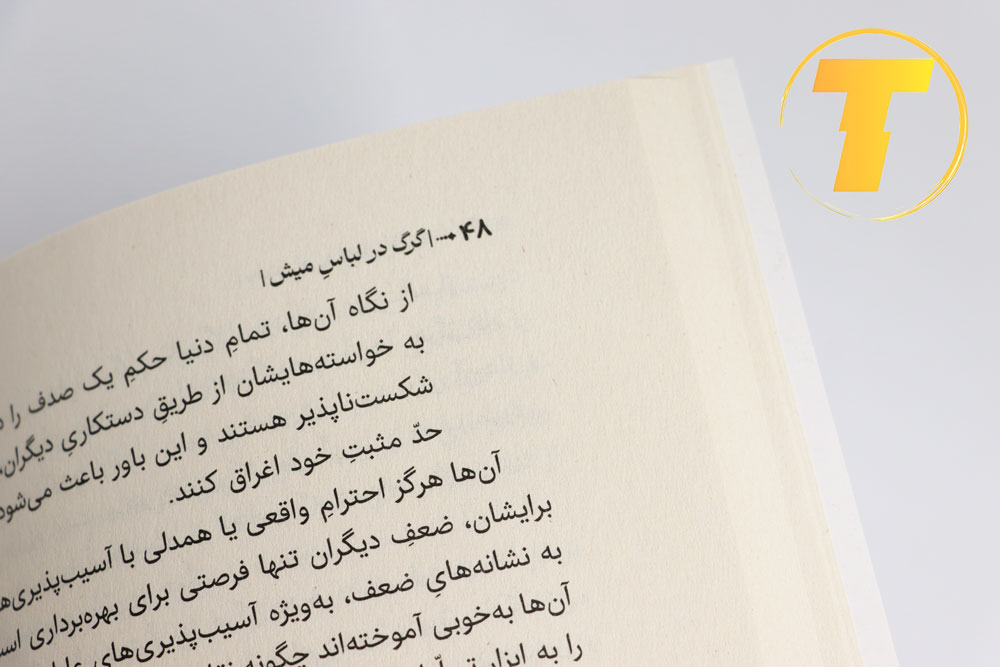 ۴۸ | گرگ در لباسِ میش |
از نگاه آن‌ها، تمامِ دنیا حکمِ یک صدف را
به خواسته‌هایشان از طریقِ دستکاریِ دیگران،
شکست‌ناپذیر هستند و این باور باعث می‌شود
حدّ مثبتِ خود اغراق کنند.
آن‌ها هرگز احترامِ واقعی یا همدلی با آسیب‌پذیری
برایشان، ضعفِ دیگران تنها فرصتی برای بهره‌برداری
به نشانه‌هایِ ضعف، به‌ویژه آسیب‌پذیری‌هایِ
آن‌ها به‌خوبی آموخته‌اند چگونه
را به ابزار
T